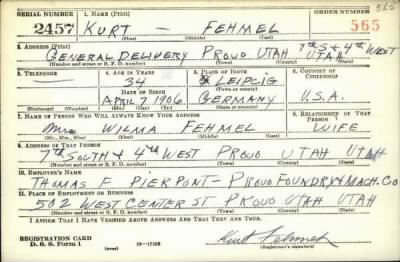 565
SERIAL NUMBER 1. NAME (Print) ORDER NUMBER
2457 KURT — FEHMEL 565
(First) (Middle) (Last)
2. ADDRESS (Print) 7th S & 4th WEST
GENERAL DELIVERY PROVO UTAH UTAH
(Number and street or R. F. D. number) (Town) (County) (State)
3. TELEPHONE 4. AGE IN YEARS 5. PLACE OF BIRTH 6. COUNTRY OF CITIZENSHIP
34 LEIPCIG
DATE OF BIRTH (Town or county)
APRIL 7 1906 GERMANY U.S.A.
(Exchange) (Number) (Mo.) (Day) (Yr.) (State or country)
7. NAME OF PERSON WHO WILL ALWAYS KNOW YOUR ADDRESS 8. RELATIONSHIP OF THAT PERSON
Mrs WILMA FEHMEL WIFE
(Mr., Mrs., Miss) (First) (Middle) (Last)
9. ADDRESS OF THAT PERSON
7th SOUTH & 4th WEST PROVO UTAH UTAH
(Number and street or R. F. D. number) (Town) (County) (State)
10. EMPLOYER'S NAME
THOMAS F PIERPONT - PROVO FOUNDRY & MACH. CO
11. PLACE OF EMPLOYMENT OR BUSINESS
502 WEST CENTER ST PROVO UTAH UTAH
(Number and street or R. F. D. number) (Town) (County) (State)
I AFFIRM THAT I HAVE VERIFIED ABOVE ANSWERS AND THAT THEY ARE TRUE.
REGISTRATION CARD
D. S. S. Form 1 (over) 16—17105 Kurt Fehmel
(Registrant's signature)